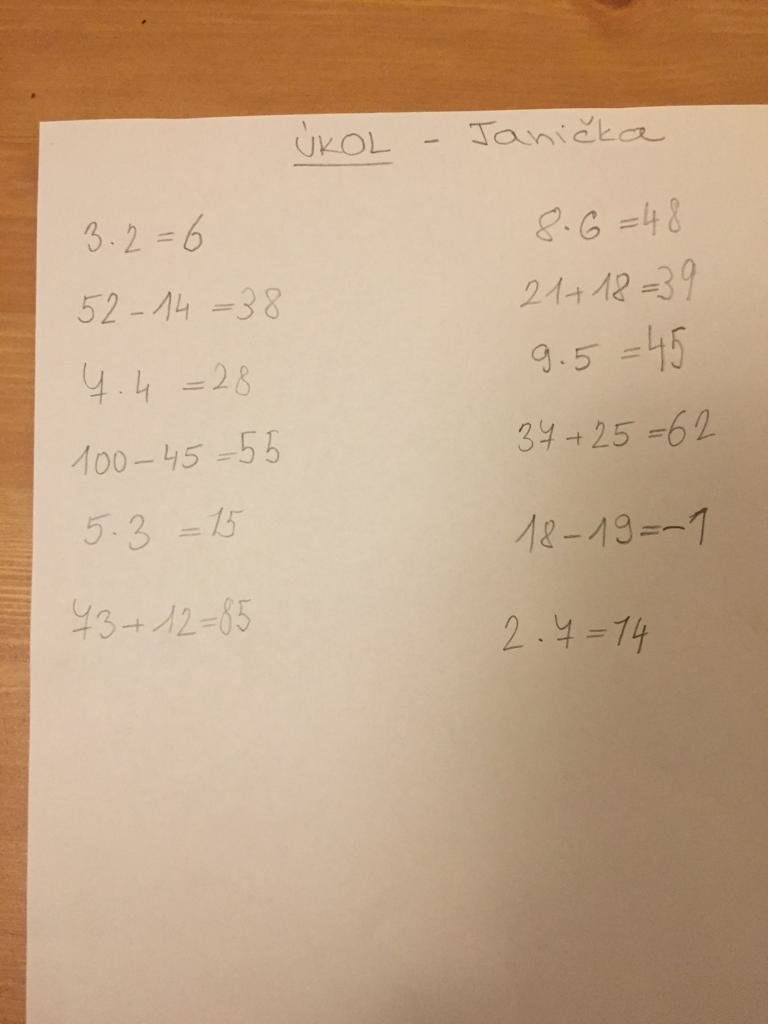 ÚKOL - Janička
3·2=6
52-14=38
7·4=28
100-45=55
5·3=15
73+12=85
8·6=48
21+18=39
9·5=45
37+25=62
18-19=-1
2·7=14